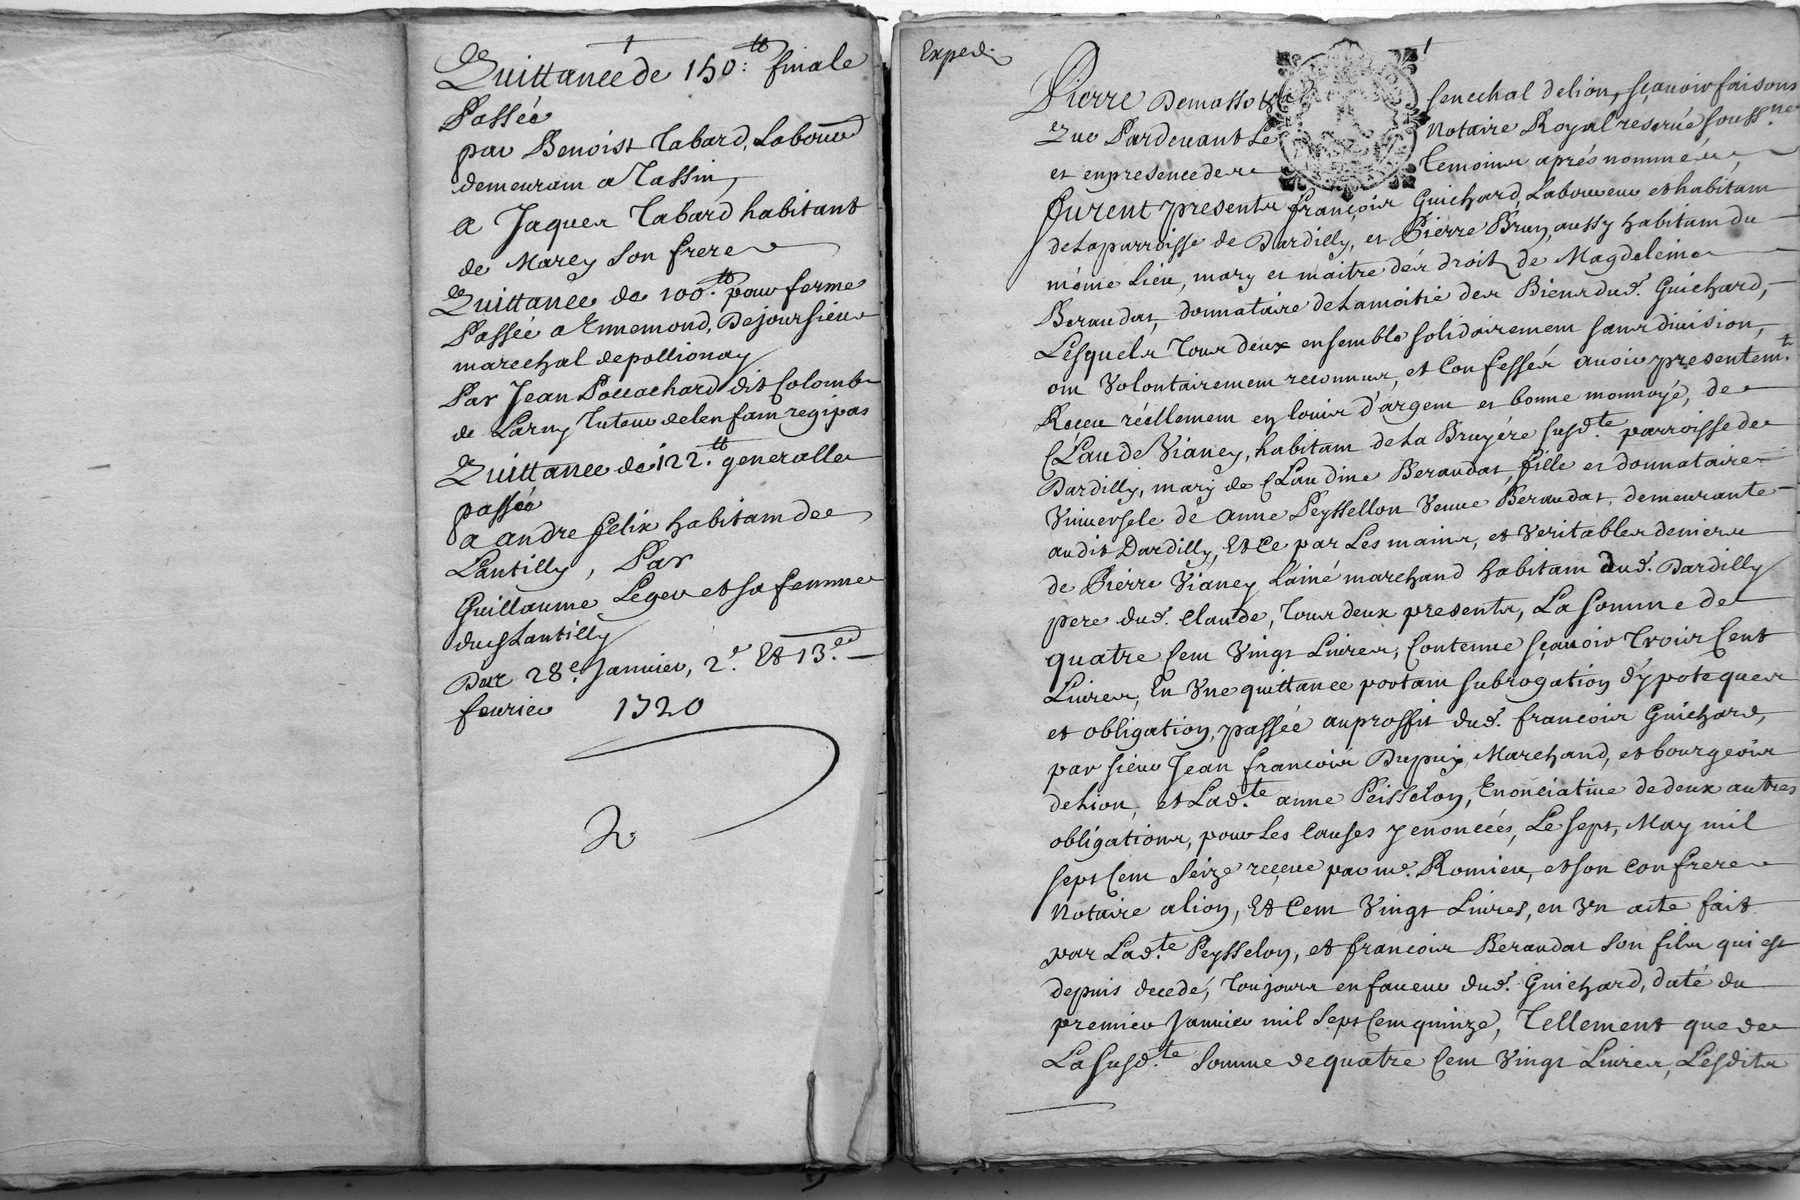 Quittance de 150:tt finale
Passée
par Benoist Tabard, Labour
demeurant a Tassin,
a Jaques Tabard habitant
de Marcy son frere
Quittance de 100.tt pour ferme
Passée a Ennemond, Dejoursieu
marechal de pollionay
Par Jean Poccachard dit Colomb
de Larny tuteur de lenfant
Quittance de 122.tt generalle
passée
a andre felix habitant de
Lantilly, Par
Guillaume Leger et sa femme
dud Lantilly
Du 28e. Janvier, 2e. Et 13.e
fevrier 1720
Exped.
Pierre Demasso senechal de lion, sçavoir faisons
que Pardevant Le Notaire Royal reservé souss.ne
et en presence de temoins aprés nommés,
furent presents françois Guichard, Laboureur et habitant
de la parroisse de Dardilly, et Pierre Brun, aussy habitant du
même Lieu, mary et maitre des droits de Magdeleine
Beraudat, donnataire de La moitié des Biens dud. Guichard,
Lesquels tous deux ensemble solidairement sans division,
ont Volontairement reconnus, et Confessés avoir presentem.t
Receu réellement en louis d'argent et bonne monnoye, de
Claude Vianey, habitant de La Bruyére susd.te parroisse de
Dardilly, mary de Claudine Beraudat, fille et donnataire
Universele de anne Peyssellon Veuve Beraudat, demeurante
audit Dardilly, Et Ce par Les mains, et Veritables deniers
de Pierre Vianey Lainé marchand habitant dud. Dardilly
pere dud. Claude, tous deux presents, La Somme de
quatre Cent Vingt Livres, Contenue sçavoir trois Cent
Livres, En Une quittance portant subrogation d'ypoteques
et obligation, passée au proffit dud. francois Guichard,
par sieur Jean francois Dupuis, Marchand, et bourgeois
de Lion, et Lad.te anne Peisselon, Enonciative de deux autres
obligations, pour Les Causes y enoncées, Le sept, May mil
sept Cent Seize reçeue par me. Romieu, et son confrere
Notaire a lion, Et Cent Vingt Livres, en Un acte fait
par Lad.te Peysselon, et francois Beraudat son fils qui est
depuis decedé, toujours en faveur dud. Guichard, daté du
premier Janvier mil Sept Cent quinze, tellement que de
La susd.te Somme de quatre Cent Vingt Livres, Lesdits